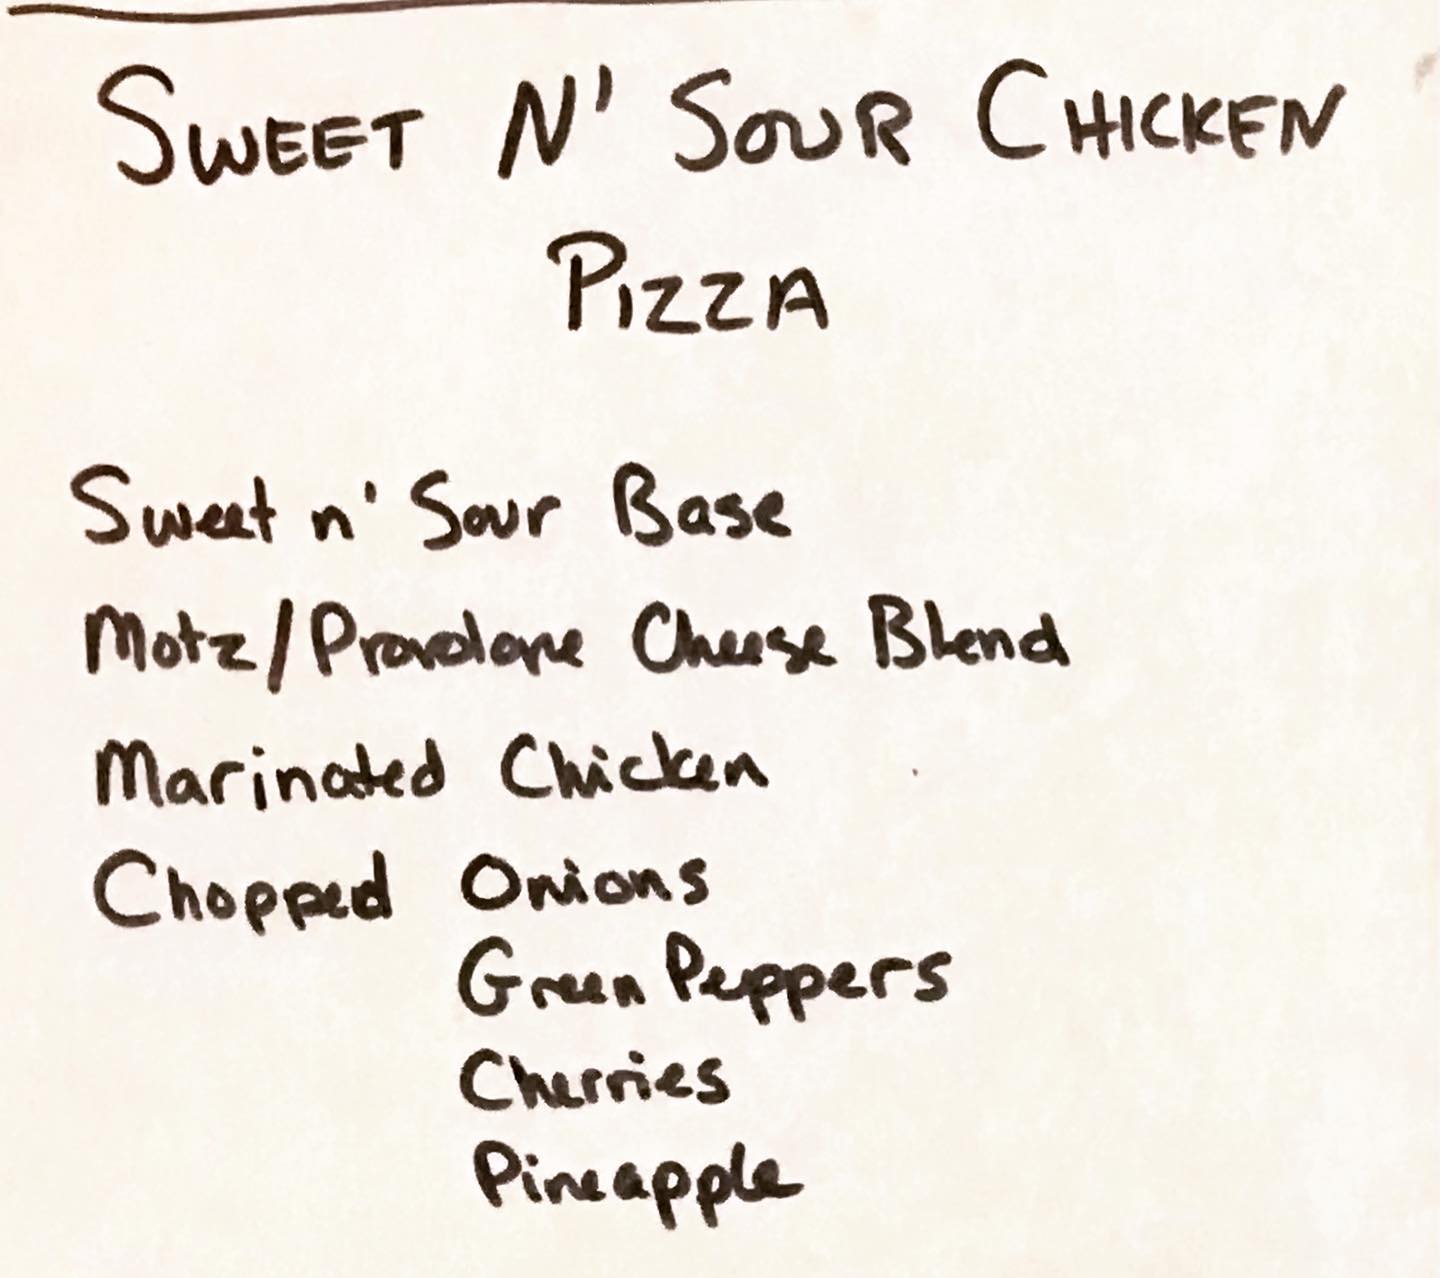 SWEET N' SOUR CHICKEN
PIZZA
Sweet n' Sour Base
Motz/Provolone Cheese Blend
Marinated Chicken
Chopped Onions
Green Peppers
Cherries
Pineapple